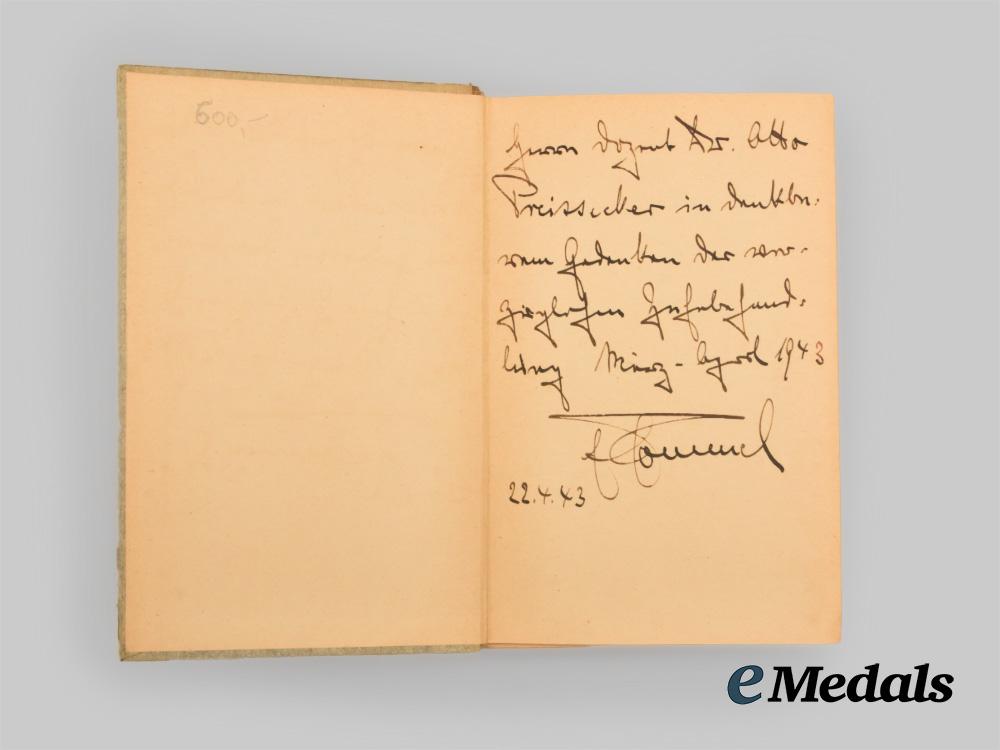 600,-
Herrn Dozent Dr. Otto
Preissecker in dankba-
rem Gedenken der vor-
züglichen
lung März - April 1943
Rommel
22.4.43
eMedals